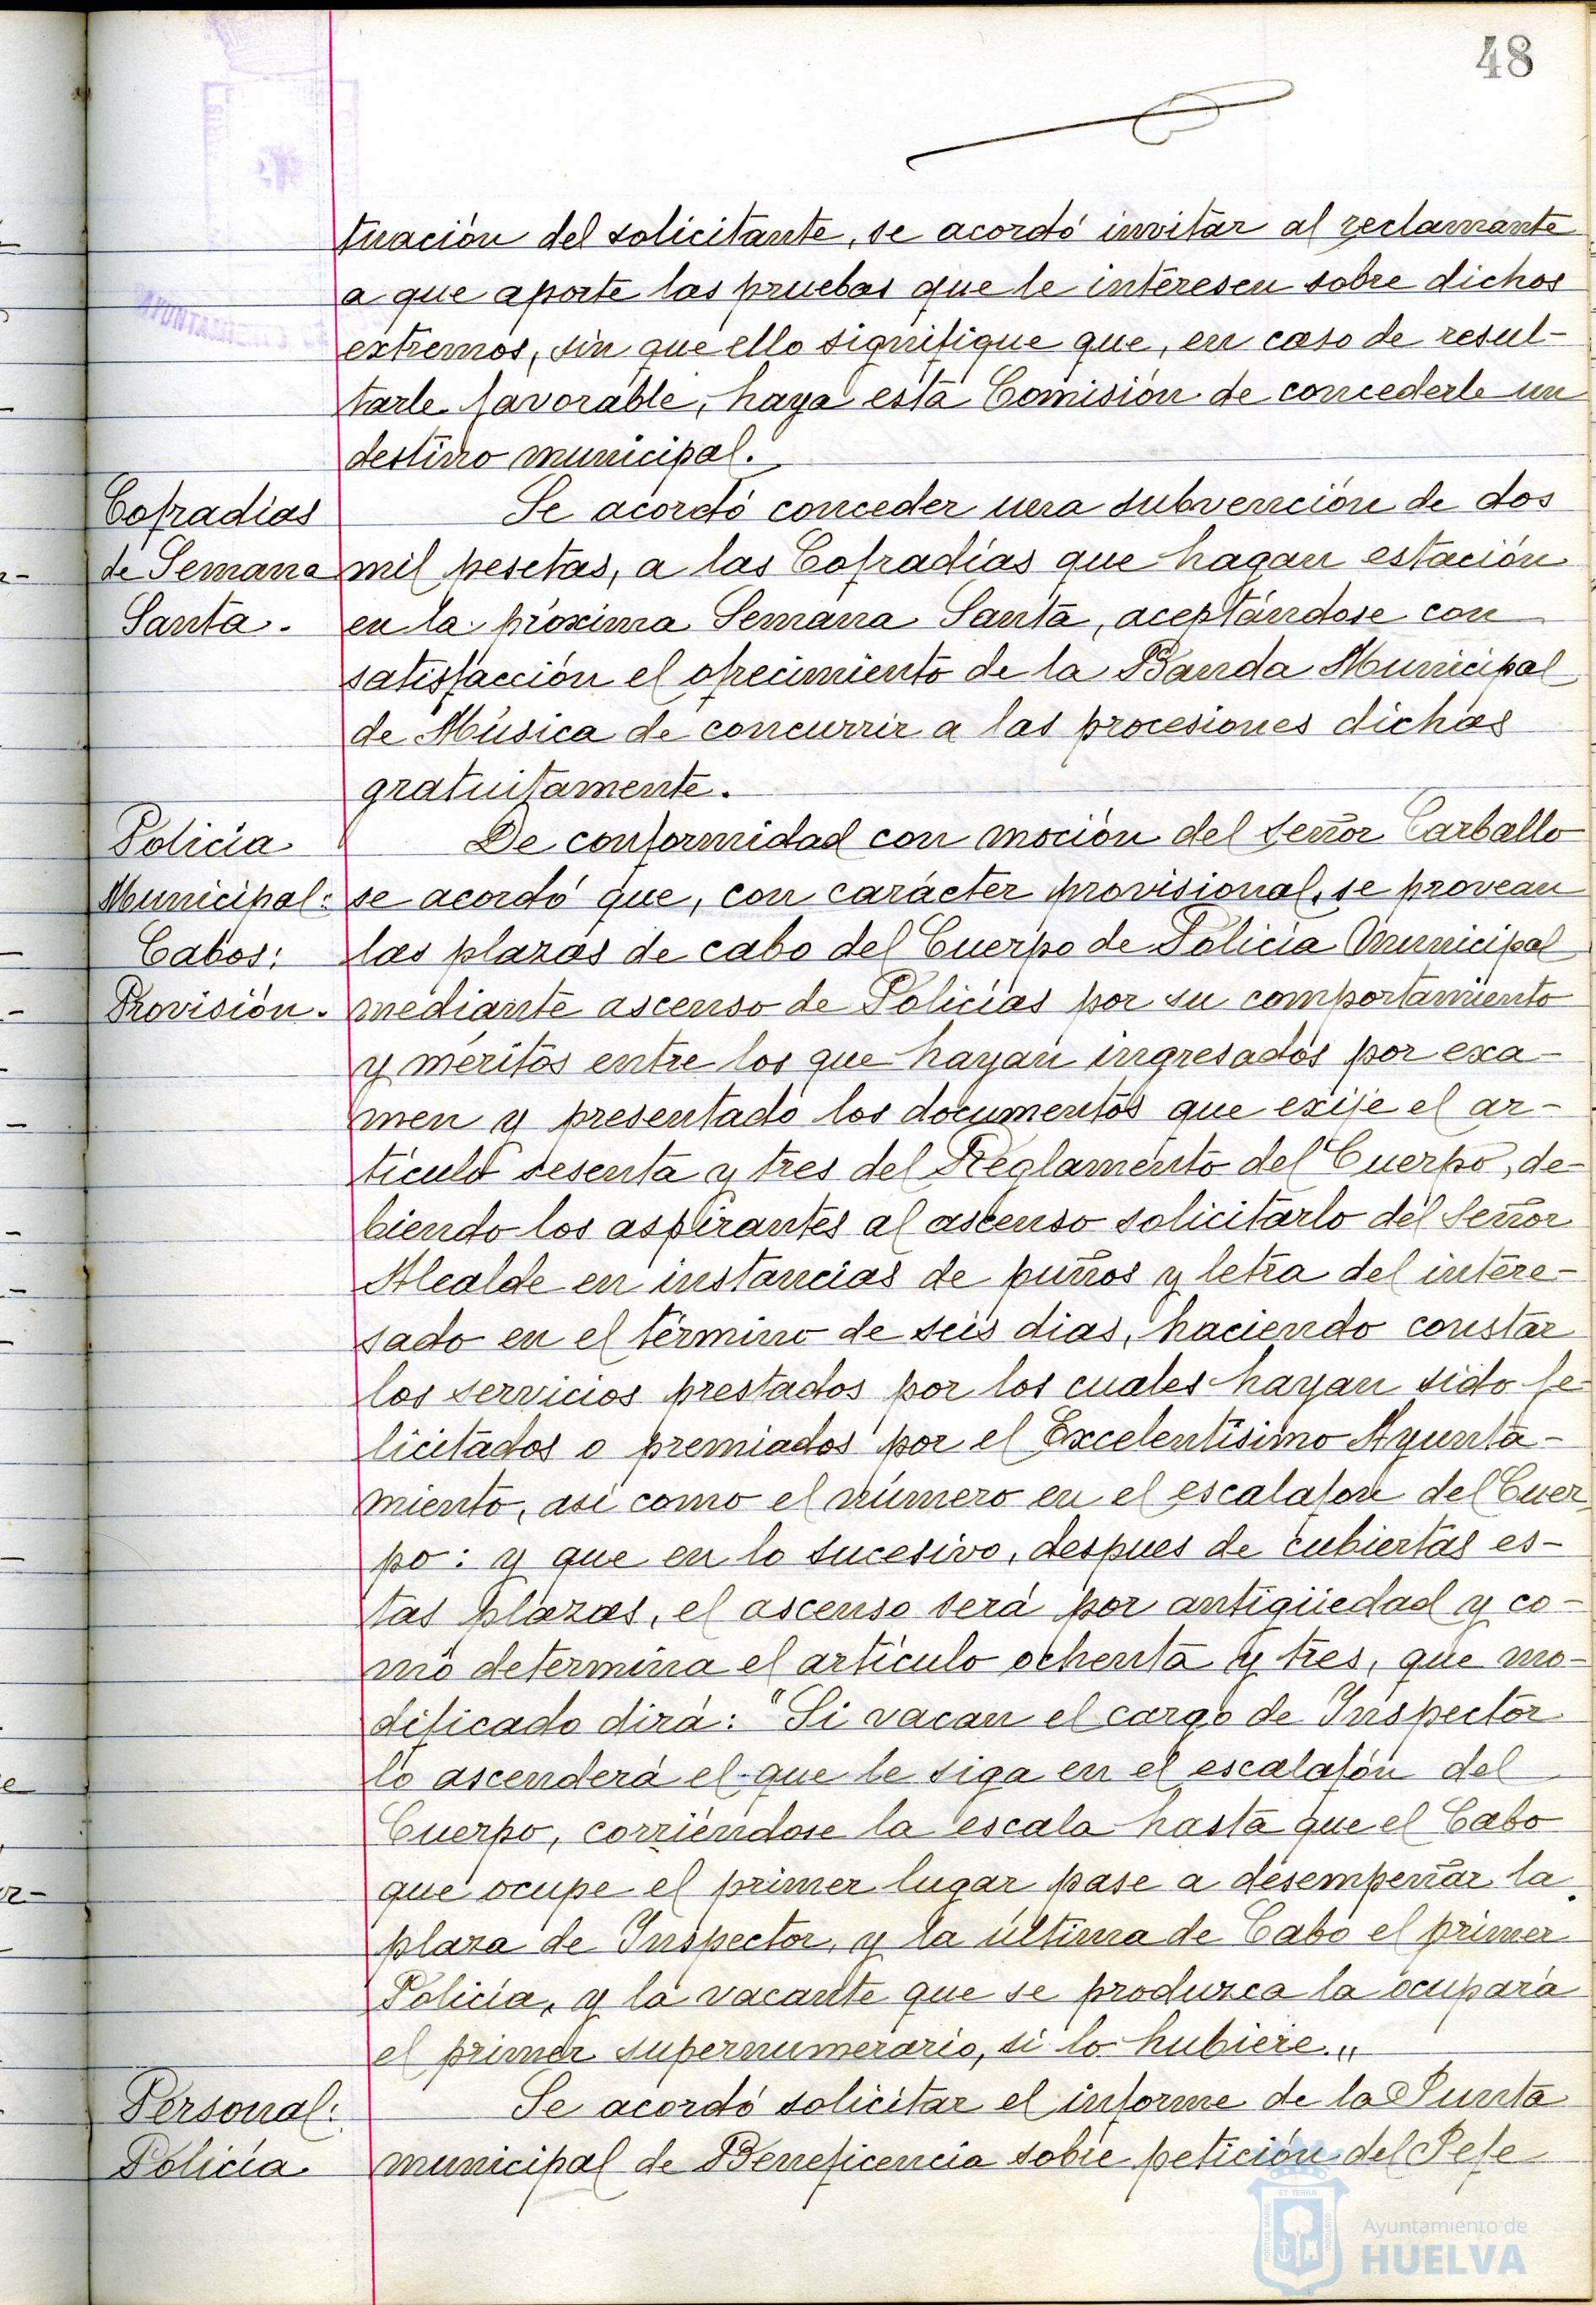 48
tuación del solicitante, se acordó invitar al reclamante
a que aporte las pruebas que le interesen sobre dichos
extremos, sin que ello signifique que, en caso de resul-
tarle favorable, haya esta Comisión de concederle un
destino municipal.
Cofradias
de Semana
Santa.
Se acordó conceder una subvención de dos
mil pesetas, a las Cofradías que hagan estación
en la próxima Semana Santa, aceptándose con
satisfacción el ofrecimiento de la Banda Municipal
de Música de concurrir a las procesiones dichas
gratuitamente.
Policía
Municipal:
Cabos:
Provisión.
De conformidad con moción del señor Carballo
se acordó que, con carácter provisional, se provean
las plazas de cabo del Cuerpo de Policía Municipal
mediante ascenso de Policías por su comportamiento
y meritos entre los que hayan ingresados por exa-
men y presentado los documentos que exije el ar-
tículo sesenta y tres del Reglamento del Cuerpo, de-
biendo los aspirantes al ascenso solicitarlo del Señor
Alcalde en instancias de puños y letra del intere-
sado en el término de seis dias, haciendo constar
los servicios prestados por los cuales hayan sido fe-
licitados o premiados por el Excelentísimo Ayunta-
miento, así como el número en el escalafon del Cuer
po: y que en lo sucesivo, despues de cubiertas es-
tas plazas, el ascenso será por antigüedad y co-
mo determina el artículo ochenta y tres, que mo-
dificado dirá: "Si vacan el cargo de Inspector
lo ascenderá el que le siga en el escalafón del
Cuerpo, corriéndose la escala hasta que el Cabo
que ocupe el primer lugar pase a desempeñar la
plaza de Inspector, y la última de Cabo el primer
Policía, y la vacante que se produzca la ocupará
el primer supernumerario, si lo hubiere."
Personal:
Policía
Se acordó solicitar el informe de la Junta
municipal de Beneficencia sobre petición del Jefe
Ayuntamiento de
HUELVA